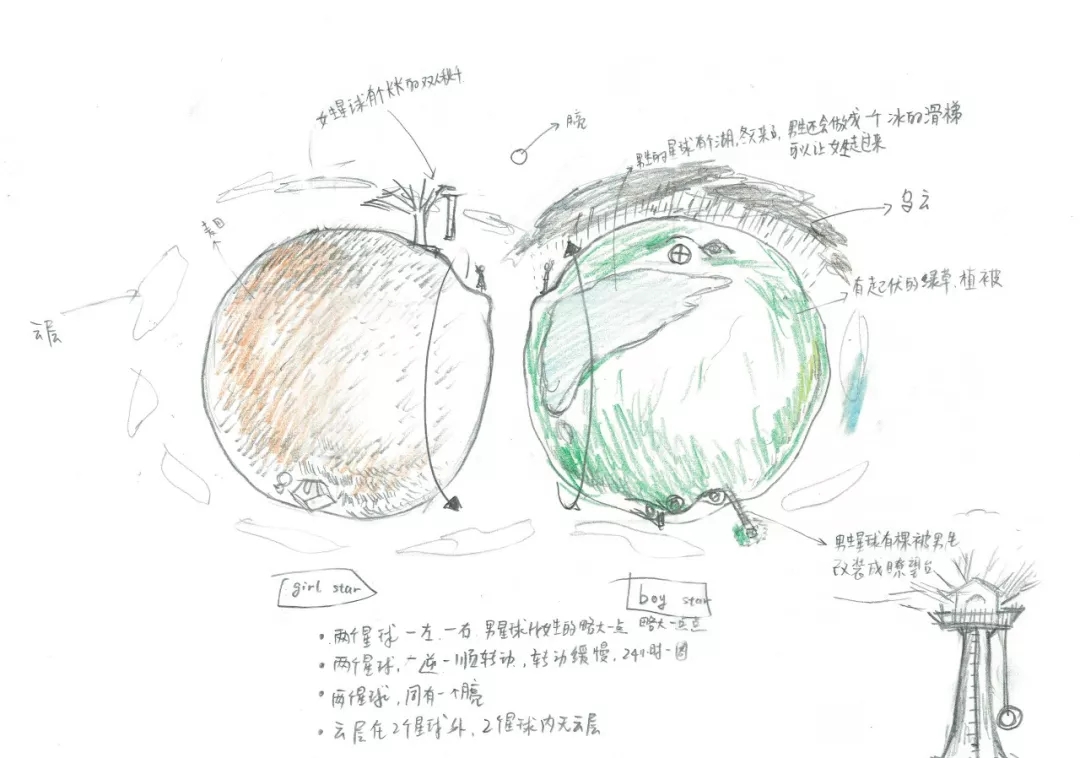 女生星球有个长长的双人秋千
月亮
男生的星球有个湖,冬天来了,男生还会做成一个冰的滑梯
可以让女生走过来
乌云
麦田
有起伏的绿草.植被
云层
男生星球有棵被男生
改装成瞭望台
girl star
boy star
• 两个星球 一左一右 男星球比女生的略大一点 略大一点点
• 两个星球,一逆一顺转动,转动缓慢,24小时一圈
• 两个星球,同有一个月亮
• 云层在2个星球外,2个星球内无云层